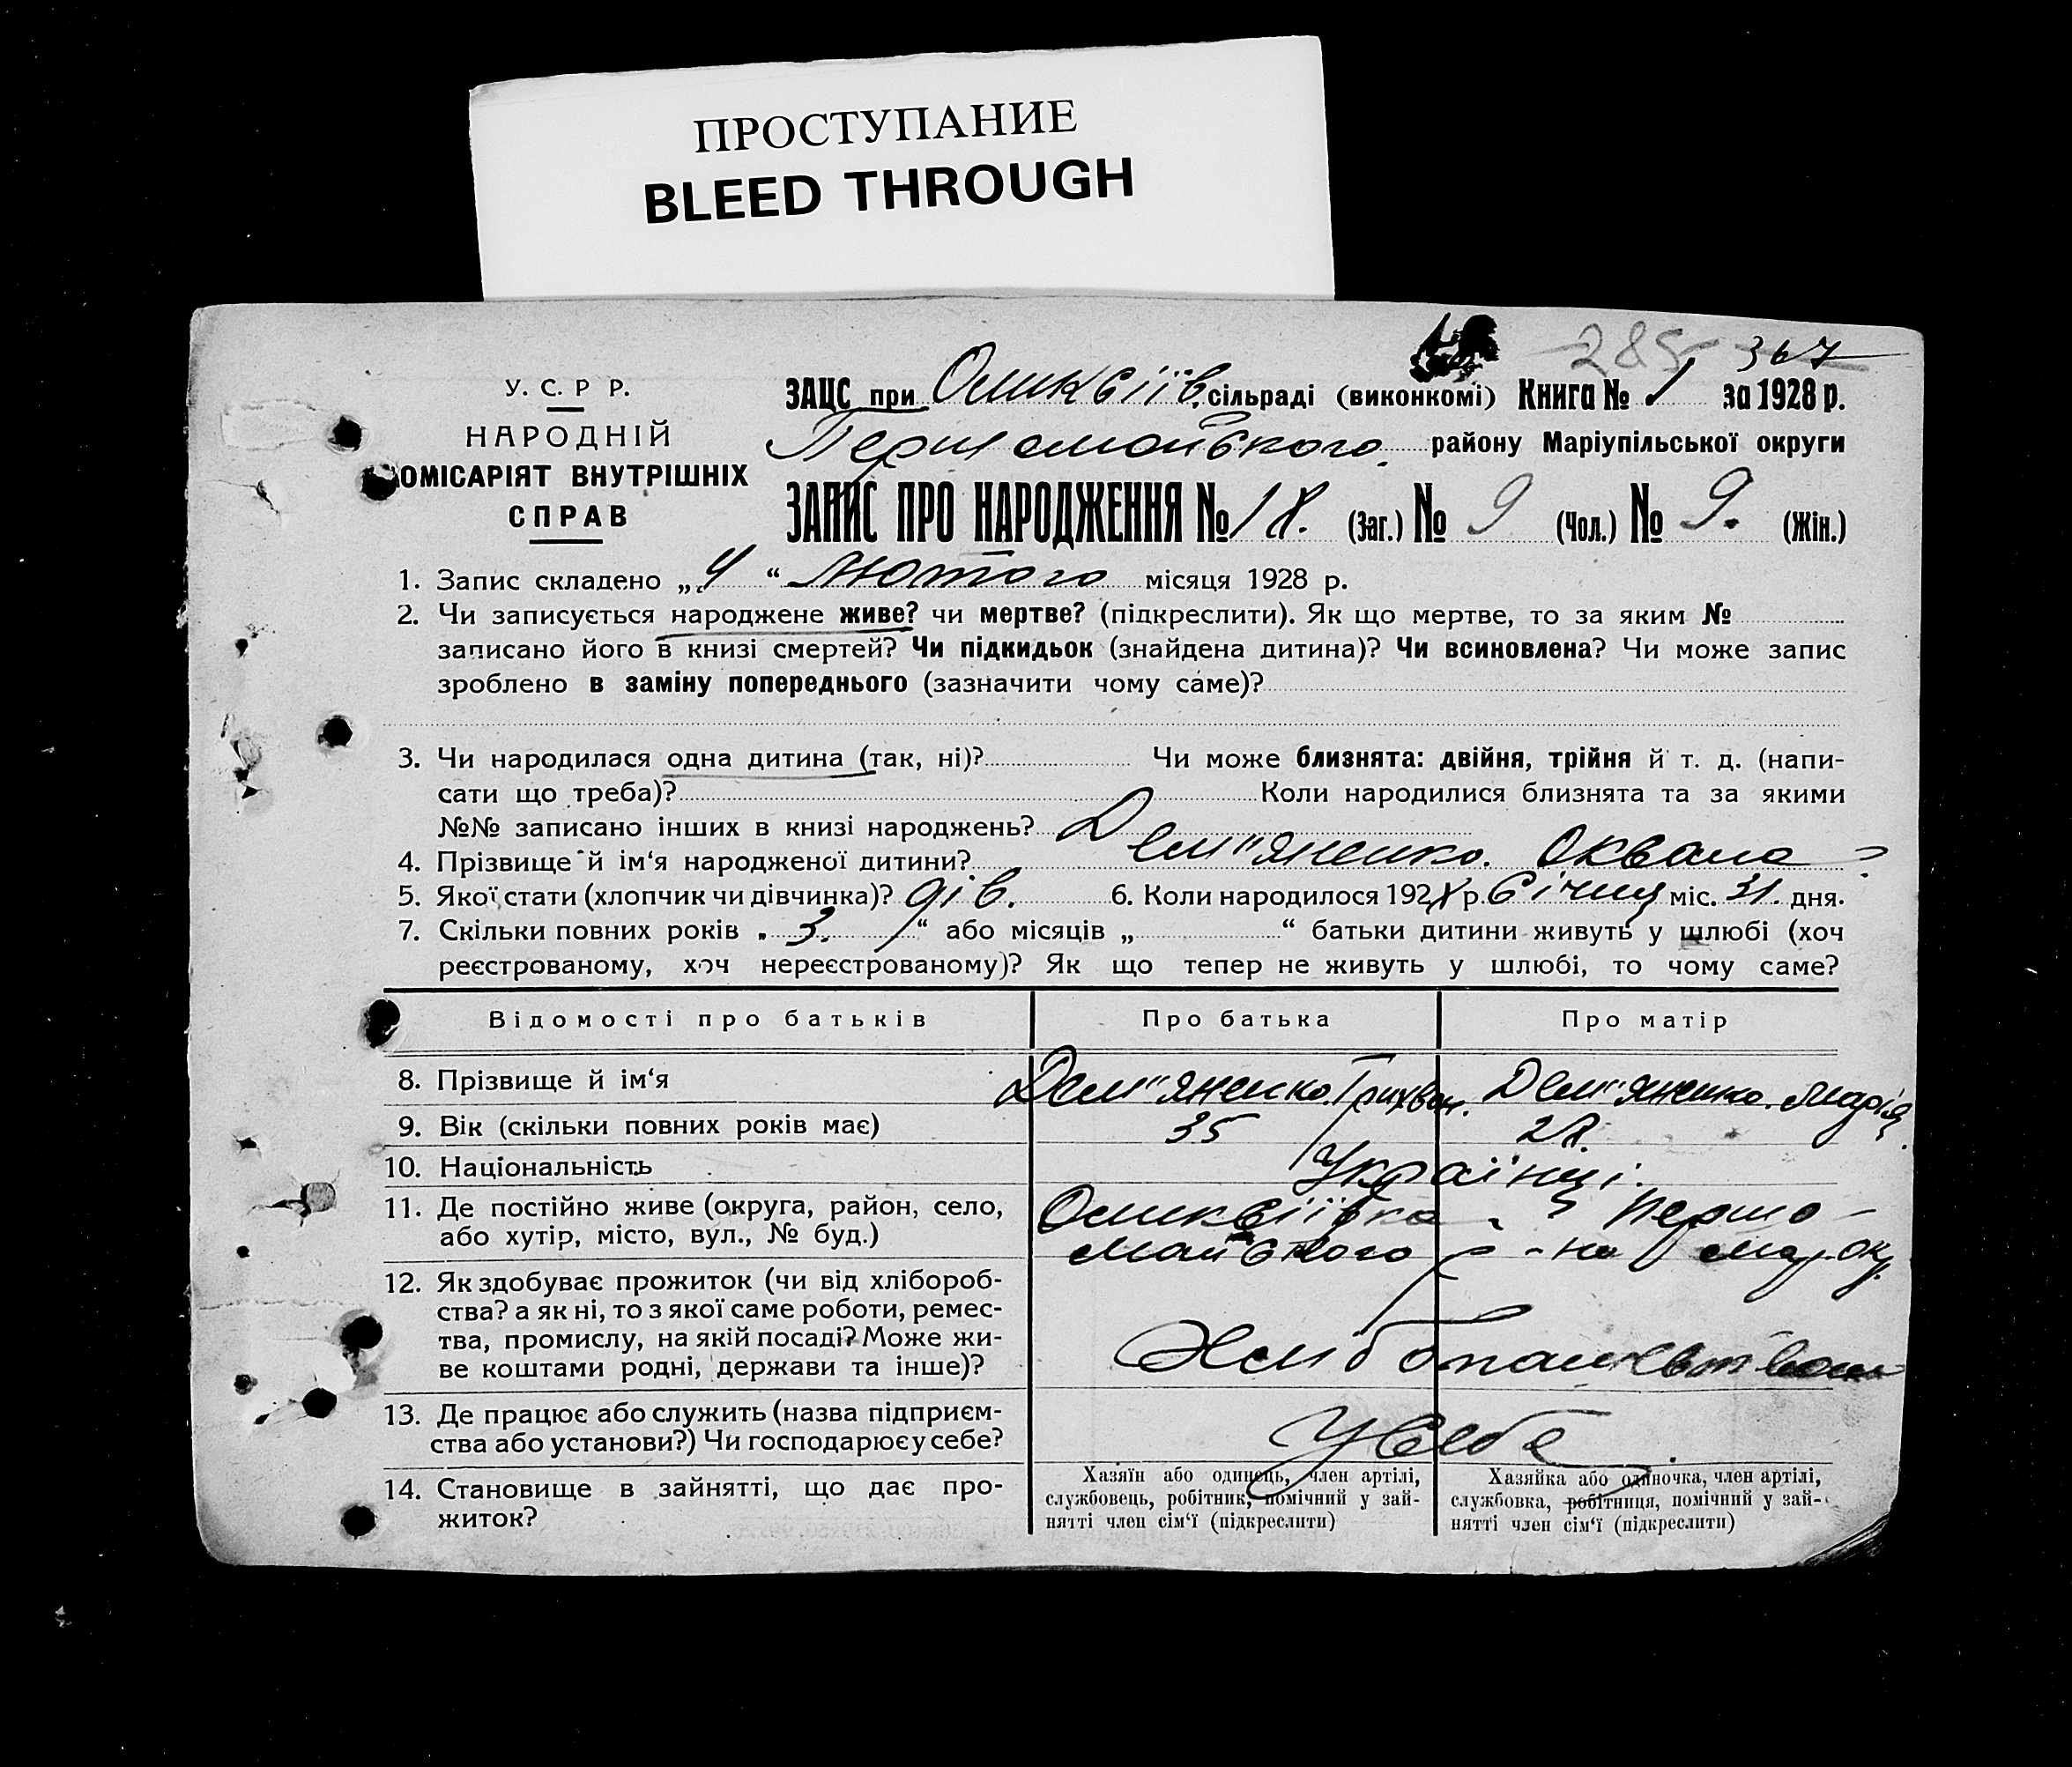 ПРОСТУПАНИЕ
BLEED THROUGH
285 367
У. С. Р Р.
НАРОДНІЙ
КОМІСАРІЯТ ВНУТРІШНІХ
СПРАВ
ЗАЦС при сільраді (виконкомі) Книга № 1 за 1928 р.
Першомайського району Маріупільської округи
ЗАПИС ПРО НАРОДЖЕННЯ № 18. (Заг.) № 9 (Чол.) № 9. (Жін.)
1. Запис складено „4“ лютого місяця 1928 р.
2. Чи записується народжене живе? чи мертве? (підкреслити). Як що мертве, то за яким №
записано його в книзі смертей? Чи підкидьок (знайдена дитина)? Чи всиновлена? Чи може запис
зроблено в заміну попереднього (зазначити чому саме)?
3. Чи народилася одна дитина (так, ні)? Чи може близнята: двійня, трійня й т. д. (напи-
сати що треба)? Коли народилися близнята та за якими
№№ записано інших в книзі народжень?
4. Прізвище й ім‘я народженої дитини? Дем"яненко.
5. Якої стати (хлопчик чи дівчинка)? дів. 6. Коли народилося 1928 р. січня міс. 31. дня.
7. Скільки повних років „ 3. “ або місяців „ “ батьки дитини живуть у шлюбі (хоч
реєстрованому, хоч нереєстрованому)? Як що тепер не живуть у шлюбі, то чому саме?
Відомості про батьків Про батька Про матір
8. Прізвище й ім‘я Дем"яненко Трихвон. Дем"яненко Марія.
9. Вік (скільки повних років має) 35 28.
10. Національність Українці.
11. Де постійно живе (округа, район, село, Першо-
або хутір, місто, вул., № буд.) майського р-на Мар. ок.
12. Як здобуває прожиток (чи від хлібороб-
ства? а як ні, то з якої саме роботи, ремес-
тва, промислу, на якій посаді? Може жи-
ве коштами родні, держави та інше)?
13. Де працює або служить (назва підприєм-
ства або установи?) Чи господарює у себе? У себе
14. Становище в зайнятті, що дає про-
житок?
Хазяїн або одинець, член артілі,
службовець, робітник, помічний у зай-
нятті член сім‘ї (підкреслити)
Хазяйка або одиночка, член артілі,
службовка, робітниця, помічний у зай-
нятті член сім‘ї (підкреслити)